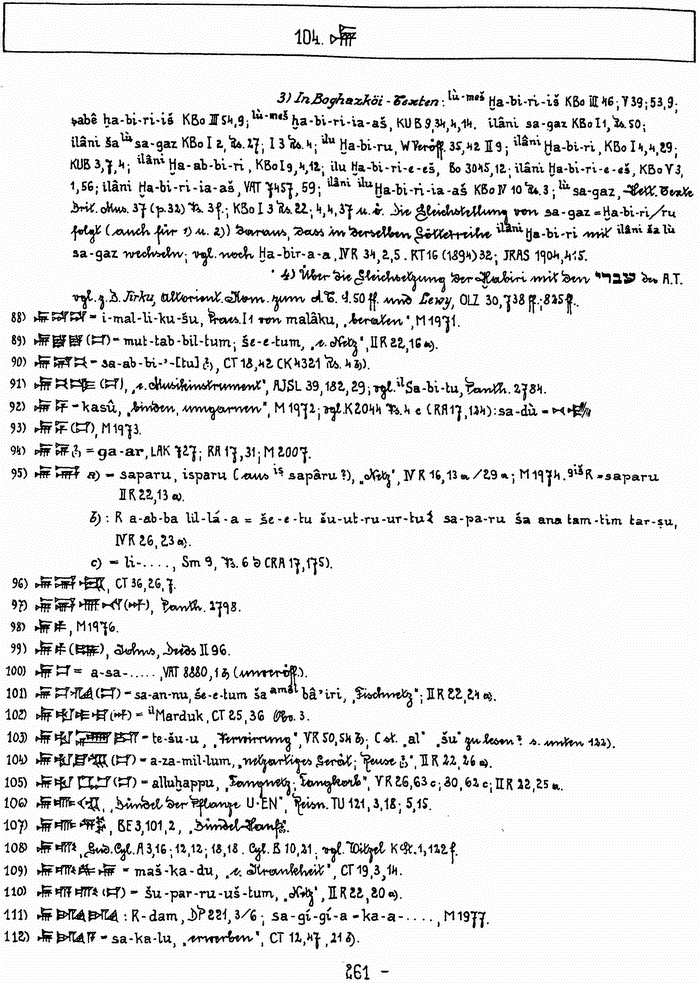 104. 𒊓
3) In Boghazköi-Texten: lù-meš Ḫa-bi-ri-iš KBo III 46; V 39; 53,9;
ṣabê ḫa-bi-ri-iš KBo III 54,9; lù-meš ḫa-bi-ri-ia-aš, KUB 9,34,4,14. ilâni sa-gaz KBo I 1, Rs. 50;
ilâni ša lù sa-gaz KBo I 2, Rs. 27; I 3 Rs. 4; ilu Ḫa-bi-ru, W Veröff. 35,42 II 9; ilâni Ḫa-bi-ri, KBo I 4,4,29;
KUB 3,7,4; ilâni Ḫa-ab-bi-ri, KBo I 9,4,12; ilu Ḫa-bi-ri-e-eš, Bo 3045,12; ilâni Ḫa-bi-ri-e-eš, KBo V 3,
1,56; ilâni Ḫa-bi-ri-ia-aš, VAT 7457,59; ilâni ilu Ḫa-bi-ri-ia-aš KBo IV 10 Rs. 3; lù sa-gaz, Hett. Texte
Brit. Mus. 37 (p. 32) Rs. 3 f.; KBo I 3 Rs. 22; 4,4,37 u. ö. Die Gleichstellung von sa-gaz = Ḫa-bi-ri/ru
folgt (auch für 1) u. 2)) daraus, dass in derselben Götterreihe ilâni Ḫa-bi-ri mit ilâni ša lù
sa-gaz wechseln; vgl. noch Ḫa-bir-a-a, IV R 34,2,5. RT 16 (1894) 32; JRAS 1904,415.
4) Über die Gleichsetzung der Habiri mit den עברי des A.T.
vgl. z.B. Jirku, altorient. Kom. zum A.T. S. 50 ff. und Lewy, OLZ 30,738 ff.; 825 ff.
88) = i-mal-li-ku-šu, Praes. I 1 von malâku, „beraten", M 1971.
89) = mut-tab-bil-tum; še-e-tum, „e. Netz", II R 22,16 a).
90) = sa-ab-bi-'-[tu]?, CT 18,42 (K 4321 Rs. 4 b).
91) „e. Musikinstrument", AJSL 39,182,29; vgl. il Sa-bi-tu, Panth. 2784.
92) = kasû, „binden, umgarnen", M 1972; vgl. K 2044 Rs. 4 c (RA 17,124): sa-dù =
93) M 1973.
94) = ga-ar, LAK 727; RA 17,31; M 2007.
95) a) = saparu, isparu (aus iṣ sapâru?), „Netz", IV R 16,13 a /29 a; M 1974. giš R = saparu
II R 22,13 a).
b): R a-ab-ba lil-lá-a = še-e-tu šu-ut-ru-ur-tu sa-pa-ru ša ana tam-tim tar-ṣu,
IV R 26,23 a).
c) = li-...., Sm 9, Rs. 6 b (RA 17,175).
96) CT 36,26,7.
97) Panth. 2798.
98) M 1976.
99) Johns, Deeds II 96.
100) = a-sa-....., VAT 8880,1 b (unveröff.).
101) = sa-an-nu, še-e-tum ša amêl bâ'iri, „Fischnetz"; II R 22,24 a).
102) = il Marduk, CT 25,36 Obv. 3.
103) = te-šu-u, „Verwirrung", V R 50,54 b; (st. „al" „šu" zu lesen? s. unten 122).
104) = a-za-mil-lum, „netzartiges Gerät; Reuse?", II R 22,26 a).
105) = alluḫappu, „Fangnetz; Fangkorb", V R 26,63 c; 30,62 c; II R 22,25 a.
106) „Bündel der Pflanze U·EN", Reisn. TU 121,3,18; 5,15.
107) BE 3,101,2, „Bündel Hanf".
108) Gud. Cyl. A 3,16; 12,12; 18,18. Cyl. B 10,21; vgl. Witzel K St. 1,122 f.
109) = maš-ka-du, „e. Krankheit", CT 19,3,14.
110) = šu-par-ru-uš-tum, „Netz", II R 22,20 a).
111) : R-dam, DP 221,3/6; sa-gí-gí-a = ka-a-...., M 1977.
112) = sa-ka-lu, „erwerben", CT 12,47,21 b).
261 -